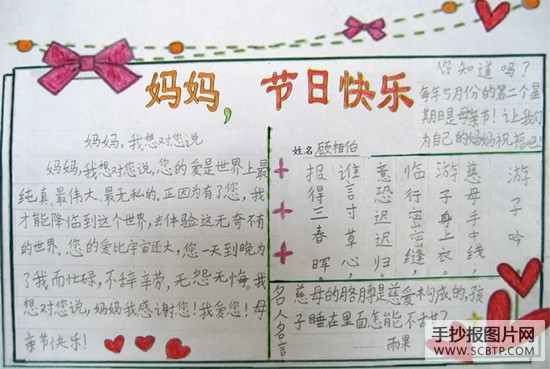 妈妈,节日快乐
你知道吗?
每年5月份的第二个星
期日是母亲节!让我们
为自己的妈妈祝福吧!
妈妈,我想对您说
妈妈,我想对您说,您的爱是世界上最
纯真、最伟大、最无私的。正因为有了您,我
才能降临到这个世界,去体验这无奇不有
的世界。您的爱比宇宙还大,您一天到晚为
了我而忙碌,不辞辛劳,无怨无悔。我
想对您说,妈妈我感谢您!我爱您!母
亲节快乐!
姓名 顾相伯
游子吟
慈母手中衣,
游子身上线,
临行密密缝,
意恐迟迟归。
谁言寸草心,
报得三春晖。
名人名言
慈母的胳膊是慈爱构成的,孩
子睡在里面怎能不甜?
雨果
手抄报图片网
WWW.SCBTP.COM